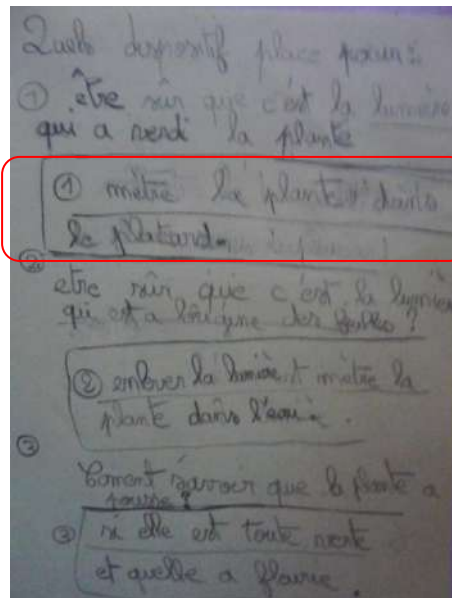 Quels dispositif place pour :
① être sûr que c'est la lumière
qui a verdi la plante
① mètre la plante dans
le platard
②
etre sûr que c'est la lumière
qui est a l'origine des bulles ?
② enlever la lumière et mètre la
plante dans l'eau .
③
Coment savoir que la plante a
pousse ?
③ si elle est toute verte
et quelle a flairie .